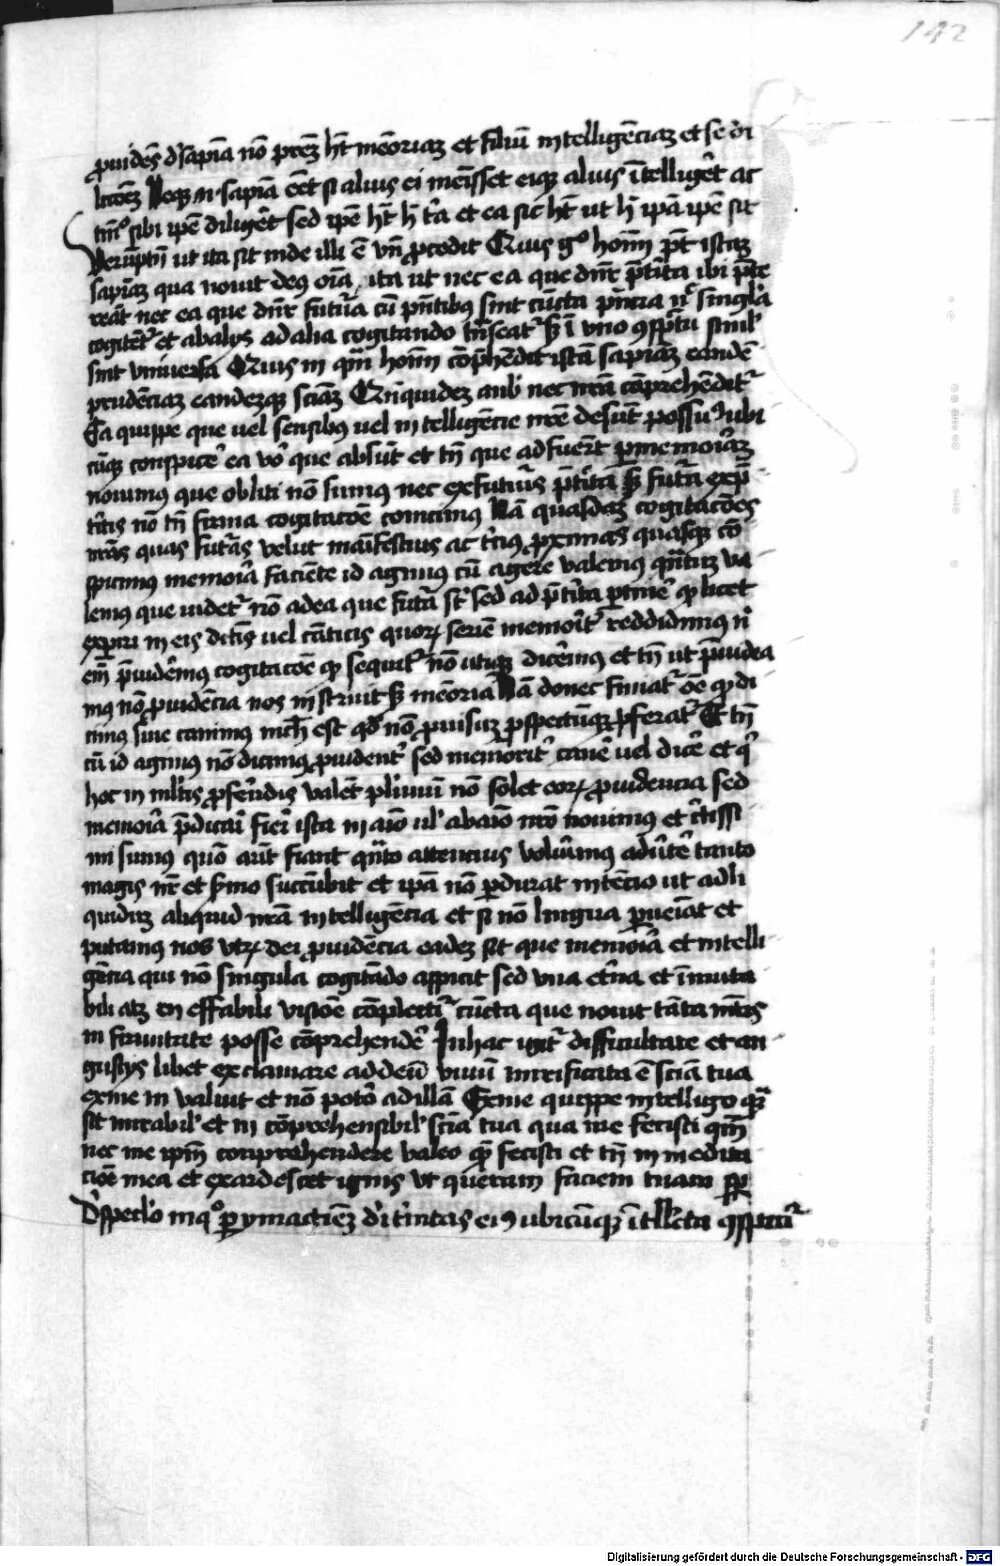 142
ꝓuidēs d' sapīa nō prēz hꝫ mēoriaz et filiū intelligēciaz et se di
lecōēz Neqꝫ n̄ sapīa eēt si alius ei mēīsset eiqꝫ alius ītelligēt ac
tm̄ᵒ sibi ipē diligēt sed ipē hꝫ h̄ tʳa et ea sic hꝫ ut h̄ ipā ipē sit
Verūptn̄ ut ita sit inde illi ē vn̄ ꝓcedit Cuius gᵒ hoīm pt̄ istaz
sapiāz qua nouit deꝰ oīa ita ut nec ea que dnr̄ pt̄ita ibi pt̄e
reāt nec ea que dnr̄ futura cū pn̄tibus sint cūcta pn̄cia nᶜ singl'a
cogitēt² et ab alijs ad alia cogitando tn̄seat² sꝫ ī vno ꝯsp̄tu simul
sint vniuersa Cuius in quā hoīm cōp̄hendit istā sapiāz eandē
prudēciaz eandeqꝫ sciāz Qn̄quidez a nob' nec nrā cōprehēdit²
Ea quippe que uel sensibꝰ uel intelligēcie nrē desūt possuꝰ ubi
cūqꝫ conspicē ea vᵒ que absūt et tn̄ que adfuerūt p̱ memoriāz
nouimus que obliti nō sumus nec ex futuris pt̄ita sꝫ futura ex pt̄
itis nō tn̄ firma cogitacōē conicimꝰ Nā quasdaz cogitacōēs
nrās quas futuras velut māifestius ac tᶜiꝰ ꝓximas quasqꝫ cō
spicimus memoria faciēte id agimꝰ cū agere valemꝰ qn̄tuz va
lemus que uidet² nō ad ea que futura st̄ sed ad pt̄ita pt̄inē qᵈ licet
experiri in eis dictis uel cāticis quoꝝ seriē memorit² reddidimus ni
em̄ p̄uidēmus cogitacōē qᵈ sequit² nō utiqꝫ dicemus et tn̄ ut p̄uidea
mꝰ nō ꝓuidēcia nos instruit sꝫ mēoria Nā donec finiat² oē qᵈ di
cimꝰ siue canimꝰ nich' est qᵈ nō ꝓuisuz ꝓspectūqꝫ ꝓferat² Et tn̄
cū id agimꝰ nō dicimꝰ ꝓuident² sed memorit² canē uel dicē et qⁱ
hoc in mltis ꝓferēdis valēt pl'imū nō solet eoꝝ ꝓuidencia sed
memoria p̄dicari fieri ista in aīo ul' ab aīo nrō nouimus et c̄tissi
mi sumus quō aūt fiant qn̄to attencius voluīmꝰ aduertē tanto
magis nr̄ et s̄mo succūbit et ipā nō p̱durat intēcio ut ad li
quiduz aliquid nrā intelligēcia et si nō lingua p̱ueīat et
putamus nos vtꝝ dei ꝓuidēcia eadez sit que memoria et intelli
gēcia qui nō singula cogitādo aspicit sed vna et̄na et īmuta
bili atqꝫ in effabili visiōe cōplectit² cūcta que nouit tāta mētis
in firmitate posse cōprehendē² In hac igit² difficultate et an
gustijs libet exclamare ad deū viuū mirificata ē sciā tua
ex me in valuit et nō poterᵒ ad illā Ex me quippe intelligo qᵃ
sit mirabil' et in cōprehensibil' sciā tua qua me fecisti qn̄
nec me ipm̄ comprehendere valeo qᵉ fecisti et tn̄ in medita
cōē mea et exardescet ignis vt queram faciem tuam sp̱
D' spec'lo in qᵒ p̱ ymaginēz d'i t'nitas ei⁹ ubicūqꝫ ītll'ecta ꝯspicit²
Digitalisierung gefördert durch die Deutsche Forschungsgemeinschaft - DFG